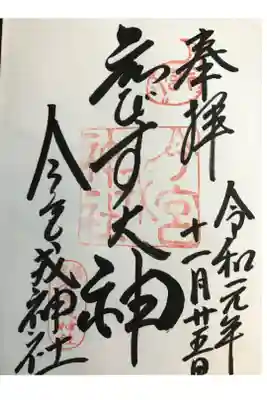 奉拝
令和元年
十一月廿五日
ゑびす大神
今宮戎神社